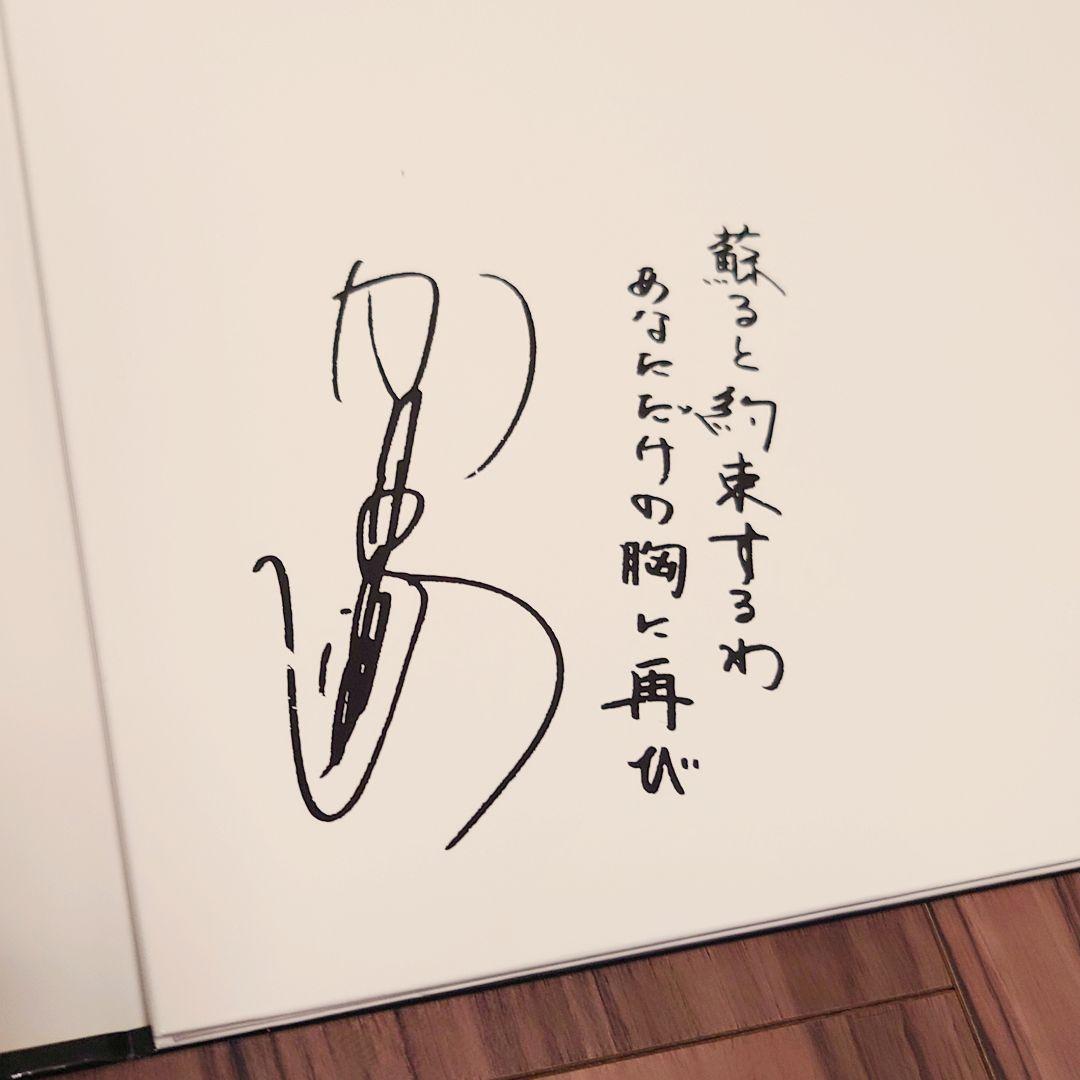 蘇ると約束するわ
あなただけの胸に再び